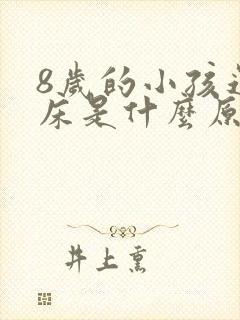 8歲的小孩
床是什麼原
井上熏